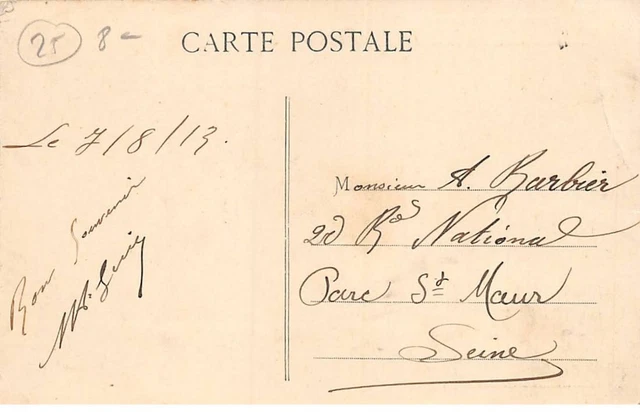 25 8-
CARTE POSTALE
Le 7/8/13.
Bon Souvenir
Monsieur A. Barbier
20 Rd National
Parc St Maur
Seine